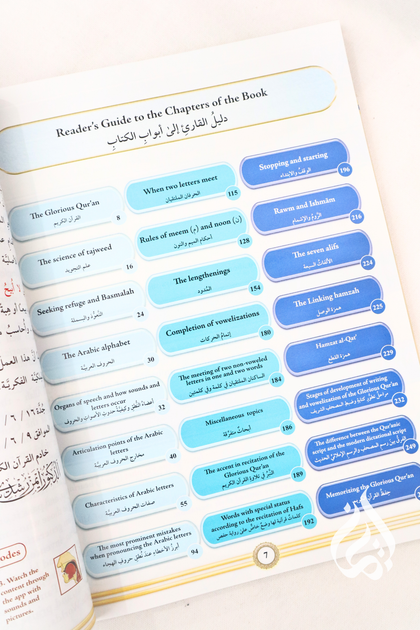 Reader's Guide to the Chapters of the Book
دليلُ القارئِ إلىٰ أبوابِ الكتابِ
The Glorious Qur'an
القرآن الكريم
8
The science of tajweed
علم التجويد
16
Seeking refuge and Basmalah
التعوُّذ والبسملة
24
The Arabic alphabet
الحروف العربيَّة
30
Organs of speech and how sounds and
letters occur
أعضاءُ النُّطقِ وكيفيَّة حدوثِ الأصواتِ والحروفِ
32
Articulation points of the Arabic
letters
مخارج الحروف العربيَّة
40
Characteristics of Arabic letters
صفات الحروف العربيَّة
55
The most prominent mistakes
when pronouncing the Arabic letters
أبرزُ الأخطاءِ عند نُطقِ حروفِ الهجاءِ
94
When two letters meet
الحرفان الملتقيان
115
Rules of meem (م) and noon (ن)
أحكام الميم والنون
128
The lengthenings
المُدود
154
Completion of vowelizations
إتمامُ الحركات
180
The meeting of two non-voweled
letters in one and two words
الساكنان الملتقيان في كلمة وفي كلمتين
184
Miscellaneous topics
أبحاثٌ متفرِّقة
186
The accent in recitation of the
Glorious Qur'an
النَّبرُ في تلاوة القرآن الكريم
189
Words with special status
according to the recitation of Hafs
كلماتٌ قرآنية لها وضعٌ خاصٌّ على رواية حفص
192
Stopping and starting
الوقفُ والابتداء
196
Rawm and Ishmām
الرَّوْمُ والإشمام
216
The seven alifs
الألفاتُ السبعة
224
The Linking hamzah
همزة الوصل
225
Hamzat al-Qat'
همزة القطع
Stages of development of writing
and vowelization of the Glorious Qur'an
مراحلُ تطوُّرِ كتابةِ وضبطِ المصحفِ الشريف
232
The difference between the Qur'anic
script and the modern dictational script
الفرقُ بين رسمِ المصحفِ والرسمِ الإملائيِّ الحديث
249
Memorising the Glorious Qur'an
حِفظُ القرآن
7
3. Watch the
content through
the app with
sounds and
pictures.